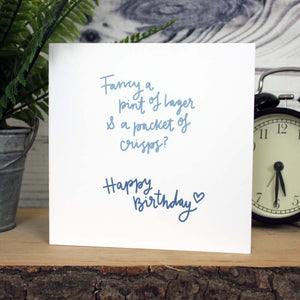 Fancy a
pint of lager
& a packet of
crisps?
Happy
Birthday♡